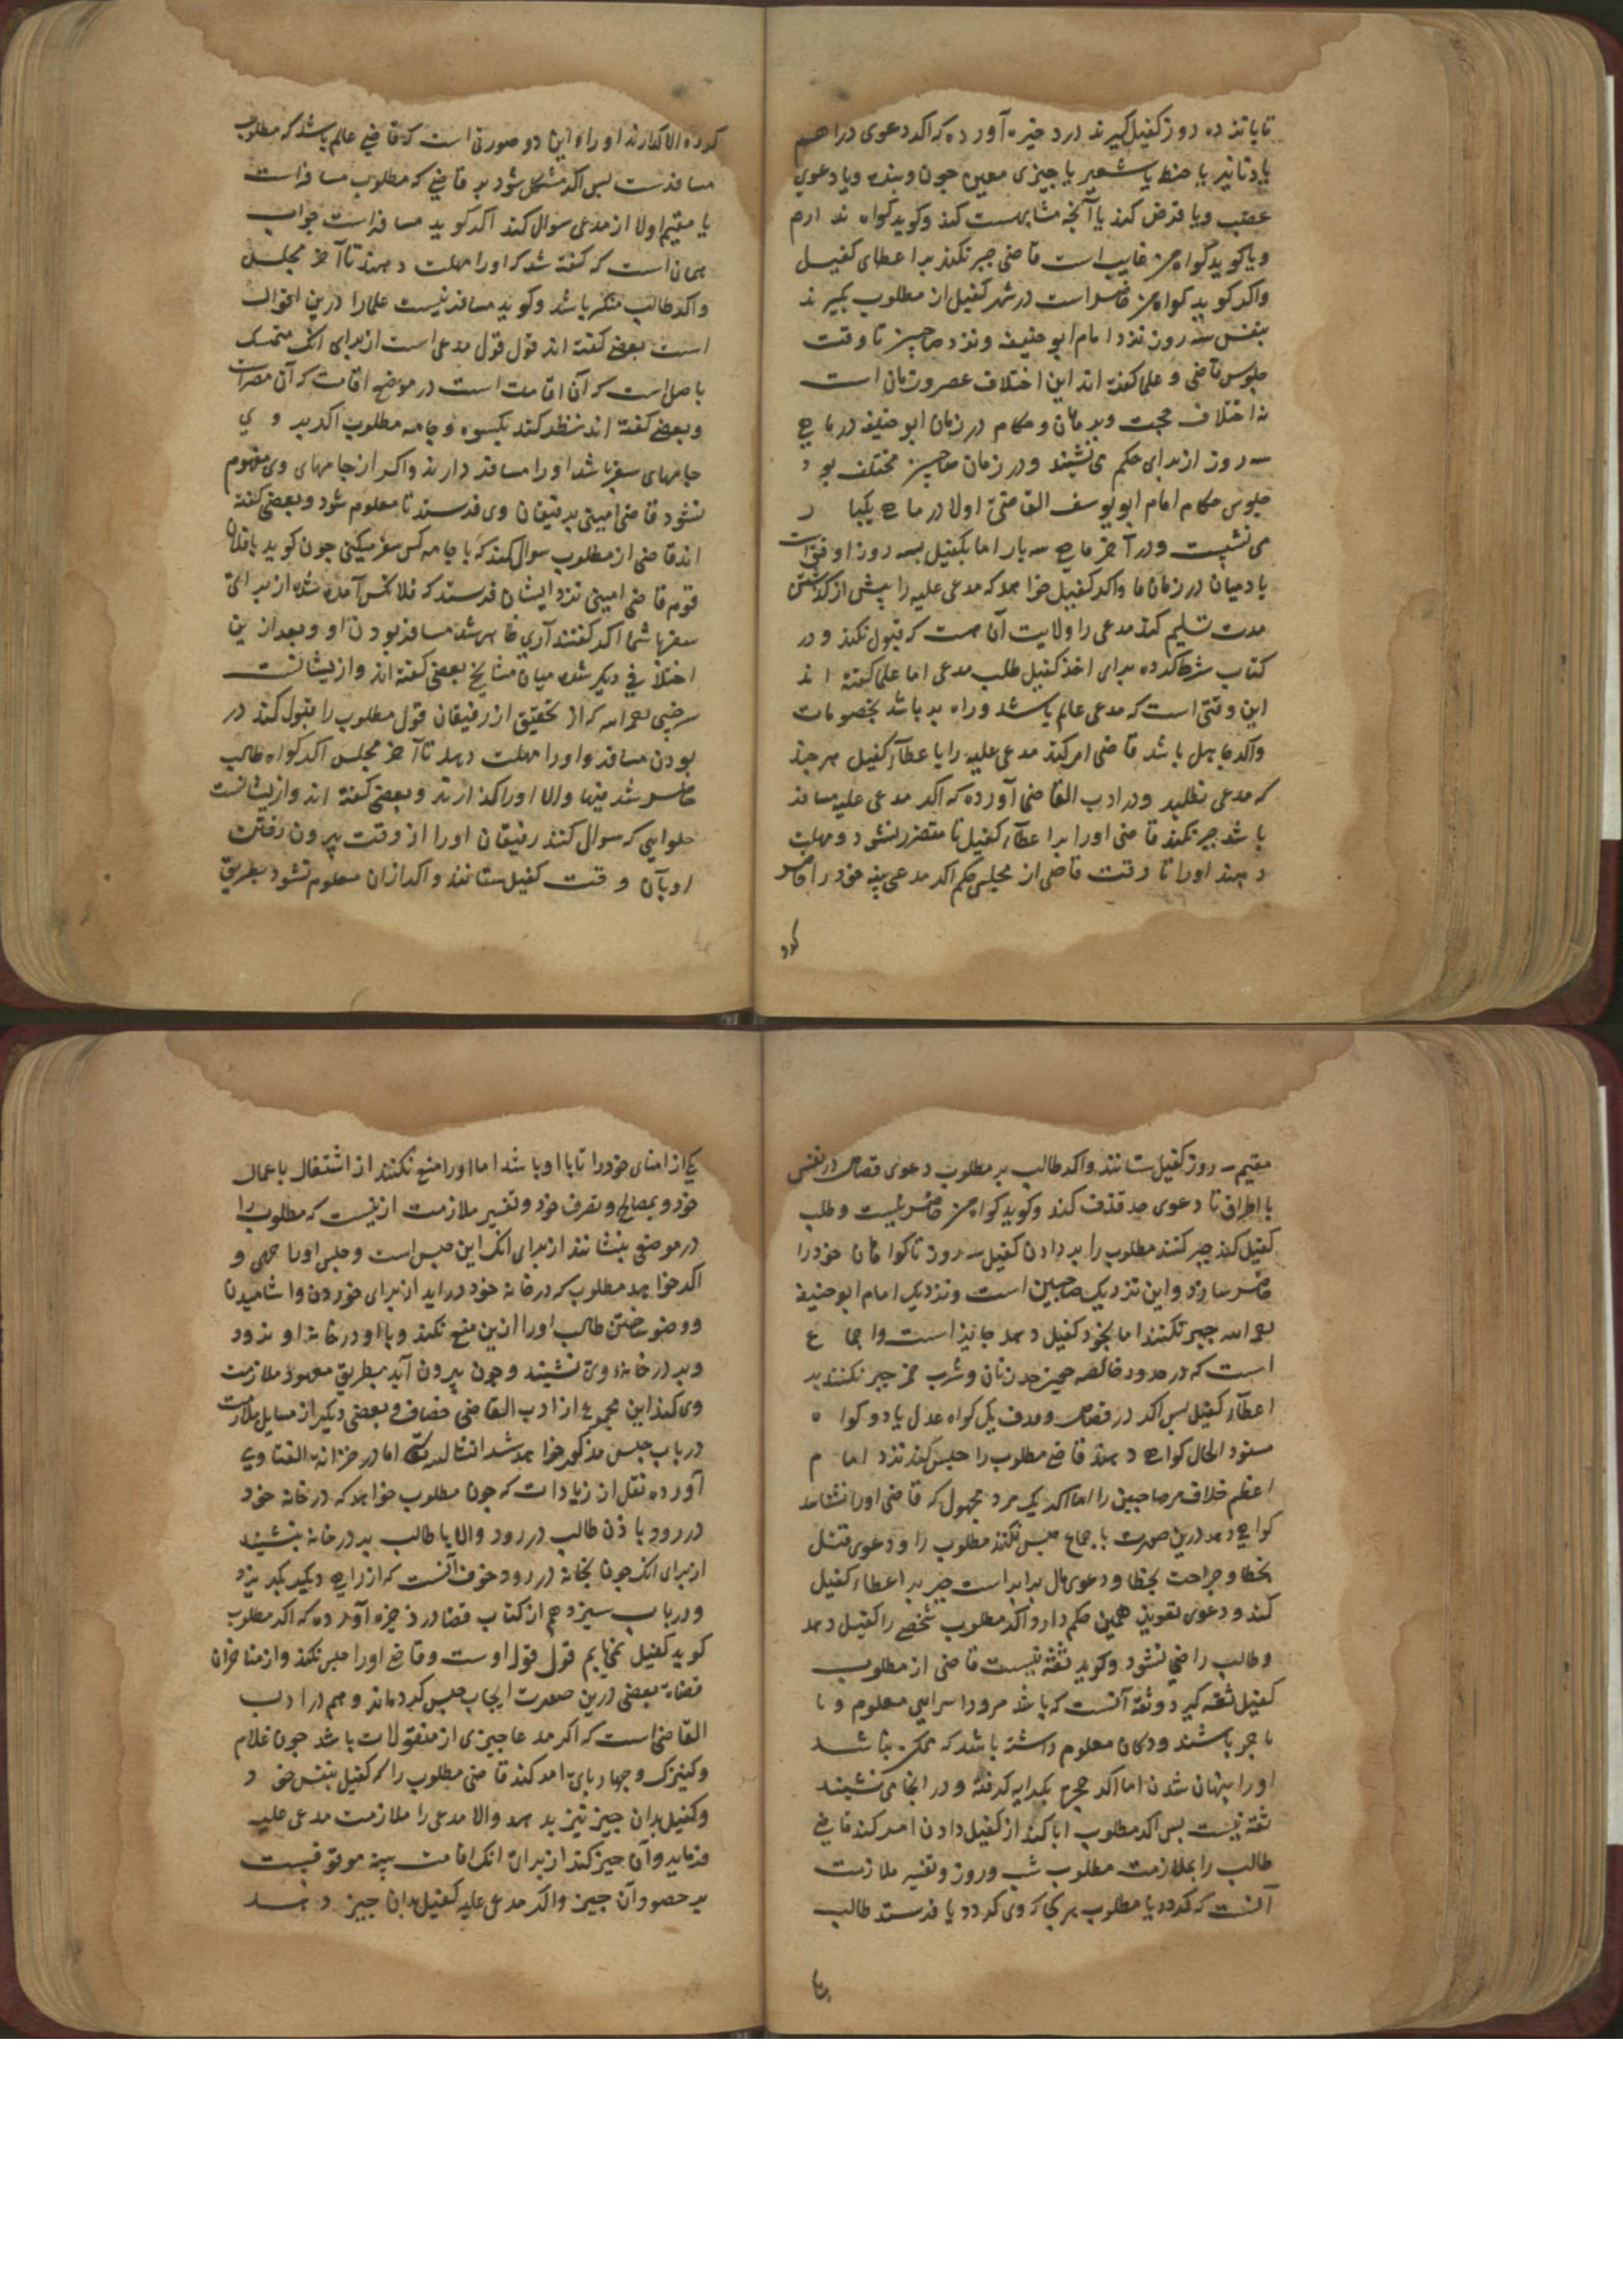 تا یابند ده روز کفیل گیرند در ذخیره آورده که اکر دعوی دراهم
یا دنانیر یا حنطه یا شعیر یا چیزی معین چون و بنده ویا دعوی
غصب ویا قرض کند یا آنچه مشابهست کند وکوید کواه ندارم
ویا کوید کواه من غایب است قاضی جبر نکند بر اعطای کفیل
واکر کوید کواه من حاضر است در شهر کفیل از مطلوب بکیرند
بنفس سه روز نزد امام ابو حنیفه ونزد صاحبین تا وقت
جلوس قاضی و علما کفته اند این اختلاف عصر وزمان است
نه اختلاف حجت وبرهان وحکام در زمان ابو حنیفه در ماهی
سه روز از برای حکم می نشینند ودر زمان صاحبین مختلف بود
جلوس حکام امام ابو یوسف القاضی اولا در ماهی یکبار
می نشست ودر آخر ماهی سه بار اما بکفیل بسه روز اوفق است
یا دمیان در زمان ما واکر کفیل خواهد که مدعی علیه را پیش از کذشتن
مدت تسلیم کند مدعی را ولایت آن هست که قبول نکند ودر
کتاب شرط کرده برای اخذ کفیل طلب مدعی اما علما کفته اند
این وقتی است که مدعی عالم باشد وراه برد باشد بخصومات
واکر جاهل باشد قاضی امر کند مدعی علیه را با عطاء کفیل هر چند
که مدعی نطلبد ودر ادب القاضی آورده که اکر مدعی علیه مسافر
باشد جبر نکند قاضی اورا بر اعطاء کفیل تا متضرر نشود ومهلت
دهند اورا تا وقت قاضی از مجلس حکم اکر مدعی بینه خود را حاضر
کرد
کرد والا کذارند اورا واین در صورتی است که قاضی عالم باشد که مطلوب
مسافرست پس اکر مشکل شود بر قاضی که مطلوب مسافر است
یا مقیم اولا از مدعی سوال کند اکر کوید مسافر است جواب
همان است که کفته شد که اورا مهلت دهند تا آخر مجلس
واکر طالب منکر باشد وکوید مسافر نیست علما را درین اقوال
است بعضی کفته اند قول قول مدعی است از برای انک متمسک
باصل است که آن اقامت است در موضع اقامت که آن مصر است
وبعضی کفته اند نظر کند بکسوه وجامه مطلوب اکر بر وی
جامهای سفر باشد اورا مسافر دارند واکر از جامهای وی مفهوم
نشود قاضی امینی برفیقان وی فرستد تا معلوم شود وبعضی کفته
اند قاضی از مطلوب سوال کند که با چه کس سفر میکنی چون کوید با فلان
قوم قاضی امینی نزد ایشان فرستد که فلانکس آماده شده از برای
سفر با شما اکر کفتند آری ظاهر شد مسافر بودن او وبعد ازین
اختلافی دیکر شده میان مشایخ بعضی کفته اند واز ایشانست
سرخسی رحمه الله که از تحقیق از رفیقان قول مطلوب را قبول کند در
بودن مسافر واورا مهلت دهد تا آخر مجلس اکر کواه طالب
حاضر شد فبها والا اورا کذارند وبعضی کفته اند واز ایشانست
حلوایی که سوال کنند رفیقان اورا از وقت بیرون رفتن
او بآن وقت کفیل ستانند واکر ازان معلوم نشود بطریق
مقیم سه روز کفیل ستانند واکر طالب بر مطلوب دعوی قصاص در نفس
یا اطراف تا دعوی حد قذف کند وکوید کواه من حاضر نیست وطلب
کفیل کند جبر کنند مطلوب را بر دادن کفیل سه روز تا کواهان خود را
حاضر سازد واین نزدیک صاحبین است ونزدیک امام ابو حنیفه
رحمه الله جبر نکنند اما بخود کفیل دهد جایز است واجماع
است که در حدود خالصه چون حد زنا وشرب خمر جبر نکنند بر
اعطاء کفیل پس اکر در قصاص وقذف یک کواه عدل یا دو کواه
مستور الحال کواهی دهند قاضی مطلوب را حبس کند نزد امام
اعظم خلاف مر صاحبین را اما اکر یک مرد مجهول که قاضی اورا نشناسد
کواهی دهد درین صورت باجماع حبس نکنند مطلوب را ودعوی قتل
بخطا وجراحت بخطا ودعوی مال برابر است جبر بر اعطاء کفیل
کند ودعوی تعویذ همین حکم دارد واکر مطلوب شخصی را کفیل دهد
وطالب راضی نشود وکوید ثقه نیست قاضی از مطلوب
کفیل ثقه کیرد وثقه آنست که باشد مرورا سرایی معلوم ویا
تاجر باشد ودکان معلوم داشته باشد که ممکن نباشد
اورا پنهان شدن اما اکر حجره بکرایه کرفته ودر انجا می نشیند
ثقه نیست پس اکر مطلوب ابا کند از کفیل دادن امر کند قاضی
طالب را بملازمت مطلوب شب وروز وتفسیر ملازمت
آنست که کردد با مطلوب هر کجا که وی کردد یا فرستد طالب
یکی از امنای خود را تا با او باشد اما اورا منع نکنند از اشتغال باعمال
خود وبمصالح وتصرف خود وتفسیر ملازمت از نیست که مطلوب را
در موضعی بنشانند از برای انک این حبس است وحبس اورا حقی و
اکر خواهد مطلوب که در خانه خود در اید از برای خوردن واشامیدن
ووضو ساختن طالب اورا ازین منع نکند وبا او در خانه او نرود
وبر در خانه وی نشیند وچون بیرون آید بطریق معهود ملازمت
وی کند این مجموع از ادب القاضی خصاف وبعضی دیکر از مسایل ملازمت
در باب حبس مذکور خواهد شد انشاء الله تعالی اما در خزانه الفتاوی
آورده نقل از زیادات که چون مطلوب خواهد که در خانه خود
در رود باذن طالب در رود والا با طالب بر در خانه بنشیند
از برای انک چون بخانه در رود خوف آنست که از راهی دیکر بکریزد
ودر باب سیزدهم از کتاب قضا در ذخیره آورده که اکر مطلوب
کوید کفیل نمی یابم قول قول اوست وقاضی اورا حبس نکند واز متاخران
قضاة بعضی درین صورت ایجاب حبس کرده اند وهم در ادب
القاضی است که اکر مدعا چیزی از منقولات باشد چون غلام
وکنیزک وچهار پای امر کند قاضی مطلوب را که کفیل بنفس خود
وکفیل بدان چیز نیز بدهد والا مدعی را ملازمت مدعی علیه
فرماید وآن چیز کند از برای انک اقامت بینه موقوفست
بر حضور آن چیز واکر مدعی علیه کفیل بدان چیز دهد